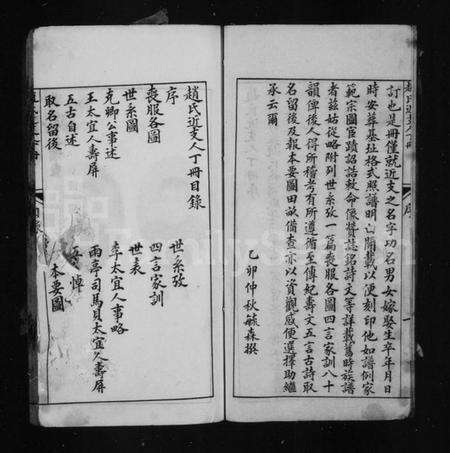 訂也是冊僅就近支之名字功名男女嫁娶生卒年月日
時安葬基址格式照譜明白開載以便刻印他如譜例家
範宗圖宦蹟詔誥敕命像贊誌銘詩文等詳載舊時族譜
者茲姑從略附列世系攷一篇喪服各圖四言家訓八十
韻俾後人得所稽考有所遵循至傳紀壽文五言古詩取
名留後及報本要圖田畝備查亦以資觀感便選擇助繼
承云爾
乙卯仲秋毓森撰
序
一
趙氏近支人丁冊目錄
序
世系攷
喪服各圖
四言家訓
世系圖
世表
克卿公事述
李太宜人事略
王太宜人壽屏
雨亭司馬貝太宜人壽屏
五古自述
取名留後
本要圖